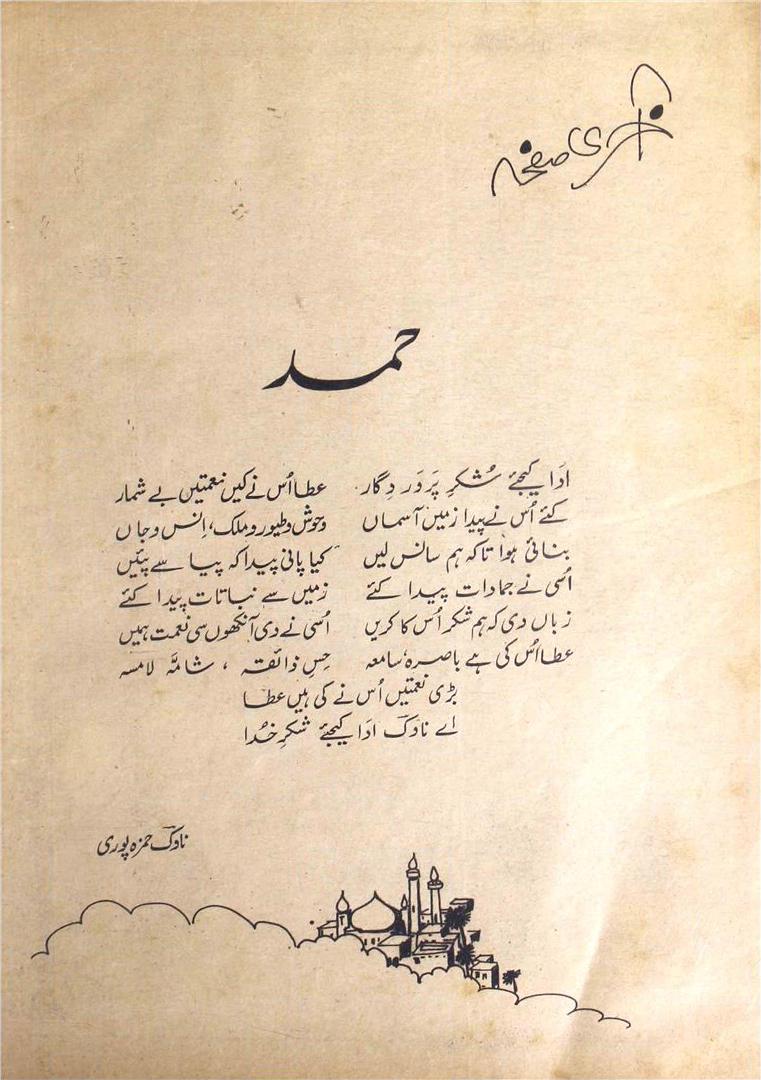 آخری صفحہ
حمد
ادَا کیجئے شُکرِ پَروَر دِگار عطا اُس نے کیں نعمتیں بے شمار
کئے اُس نے پیدا زمیں آسماں وحوش و طیور و ملک، اِنس و جاں
بنائی ہوا تاکہ ہم سانس لیں کیا پانی پیدا کہ پیاسے پئیں
اُسی نے جمادات پیدا کئے زمیں سے نباتات پیدا کئے
زباں دی کہ ہم شکر اُس کا کریں اُسی نے دی آنکھوں سی نعمت ہمیں
عطا اُس کی ہے باصرہ، سامعہ حِسِ ذائقہ، شامَّہ لامسہ
بڑی نعمتیں اُس نے کی ہیں عطا
اے ناوکؔ ادَا کیجئے شکرِ خُدا
ناوکؔ حمزہ پوری